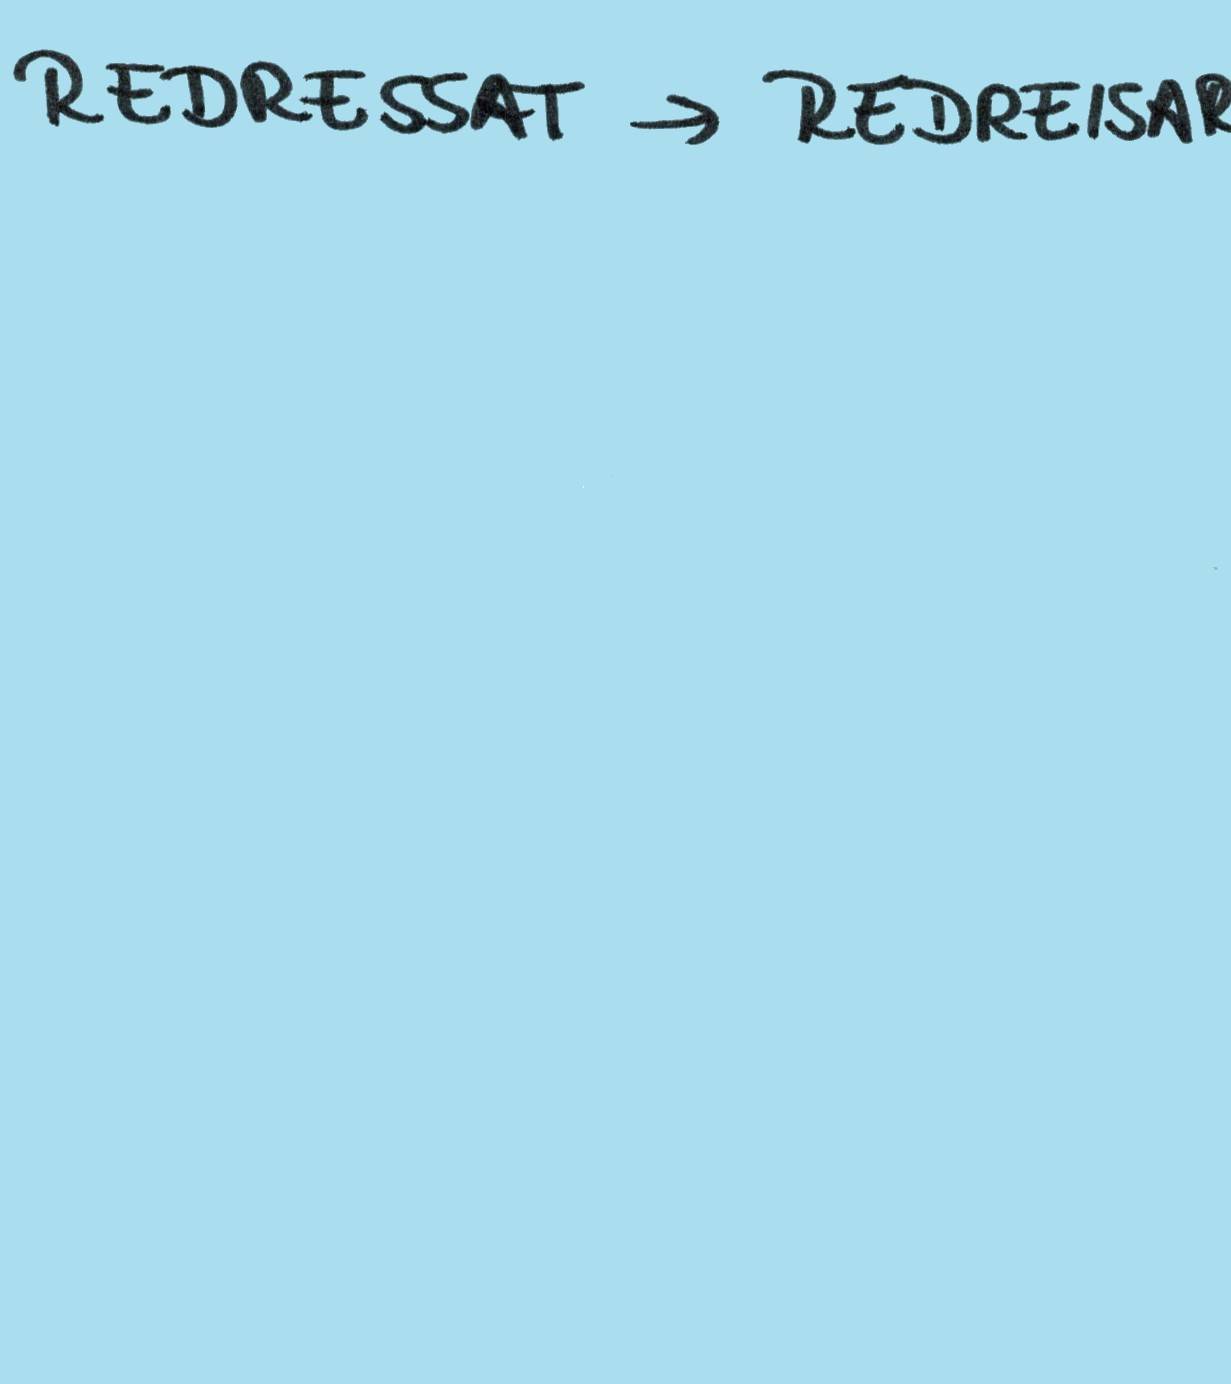 REDRESSAT → REDREISAR